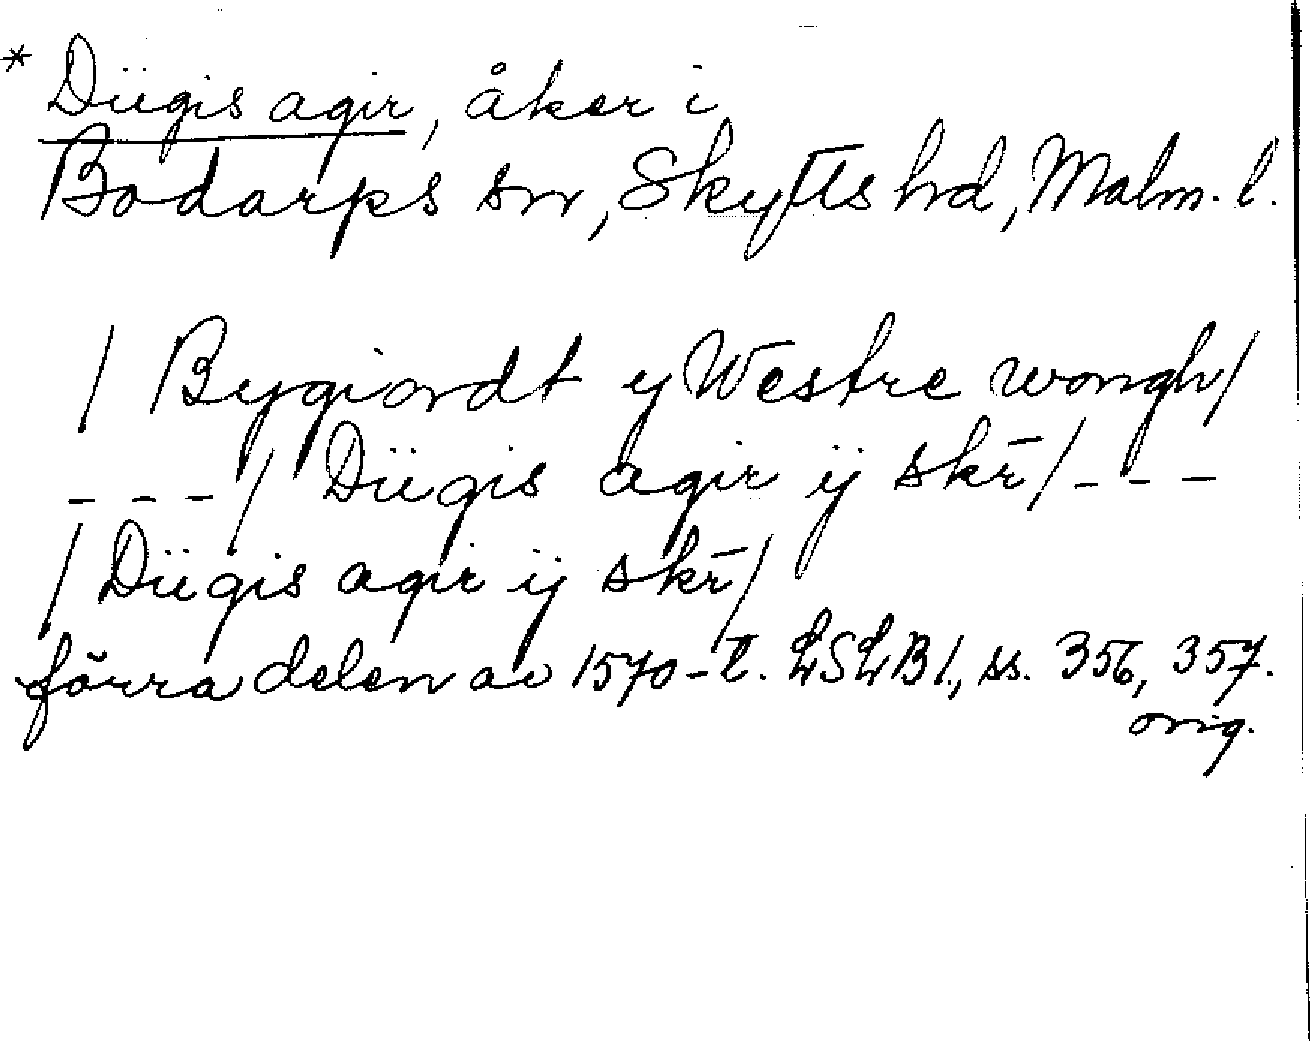 * Diigis agir, åker i
Bodarps sn, Skytts hd, Malm. l.
/ Bygiordt y Westre wongh/
- - - / Diigis agir ij skr̄ / - - -
/ Diigis agir ij skr̄ /
förra delen av 1570-t. LSLB1., ss. 356, 357.
orig.